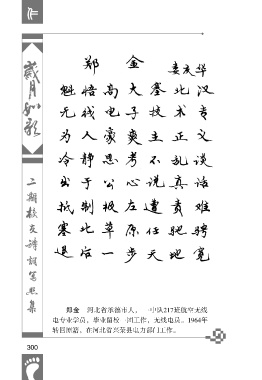 歲月如歌
二期校友诗词写照集
郑 金
魁梧高大塞北汉
无线电子技术专
为人豪爽主正义
冷静思考不乱谈
出于公心说真话
抵制极左遭责难
塞北草原任驰骋
退后一步天地宽
郑金 河北省承德市人，一中队217班航空无线
电专业学员，毕业留校一团工作，无线电员。1964年
转回原籍，在河北省兴荣县电力部门工作。
300